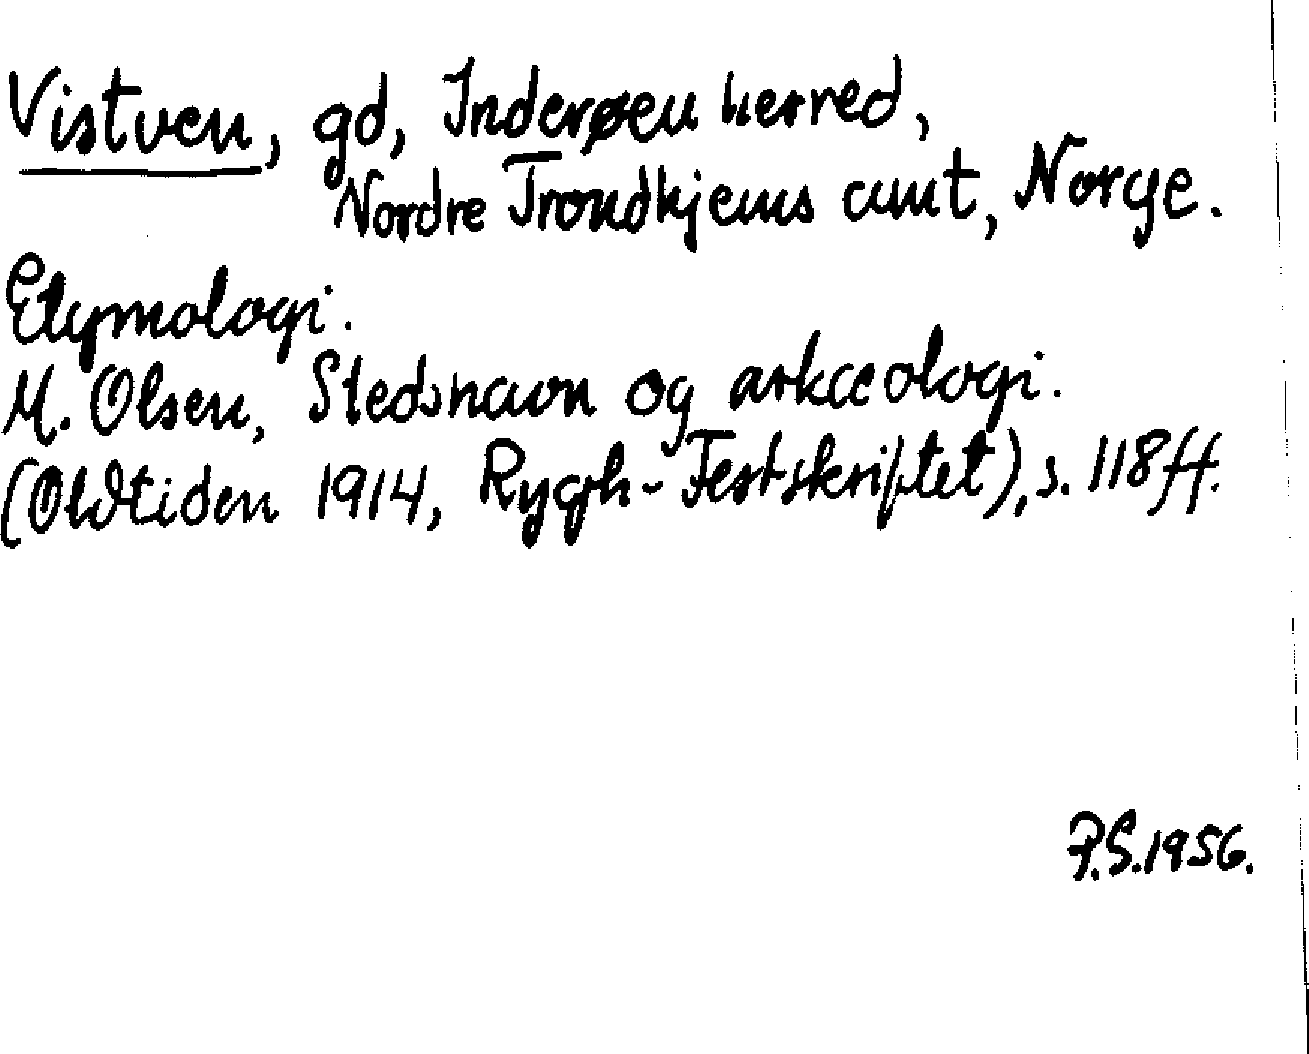 Vistven, gd, Inderøen herred,
Nordre Trondhjems amt, Norge.
Etymologi.
M. Olsen, Stedsnavn og arkæologi.
(Oldtiden 1914, Rygh-Festskriftet), s. 118ff.
P.S. 1956.